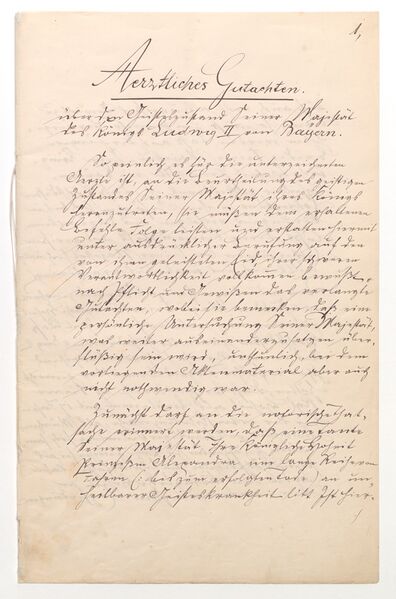 1,
Aerztliches Gutachten.
über den Geisteszustand Seiner Majestät
des Königs Ludwig II von Bayern.
So peinlich es für die unterzeichneten
Aerzte ist, an die Beurtheilung des geistigen
Zustandes Seiner Majestät ihres Königs
heranzutreten, sie müßen dem erhaltenen
Befehle Folge leisten und erstatten hiemit
unter ausdrücklicher Berufung auf den
von ihnen geleisteten Eid ihrer schweren
Verantwortlichkeit vollkommen bewußt,
nach Pflicht und Gewißen das verlangte
Gutachten, wobei sie bemerken, daß eine
persönliche Untersuchung Seiner Majestät,
was weiter auseinanderzusetzen über,
flüßig sein wird, unthunlich, bei dem
vorliegenden Aktenmaterial aber auch
nicht nothwendig war.
Zunächst darf an die notorische That,
sache erinnert werden, daß eine Tante
Seiner Majestät Ihre Königliche Hoheit
Prinzessin Alexandra, eine lange Reihe von
Jahren (: bis zum erfolgten Tode) an un,
heilbarer Geisteskrankheit litt